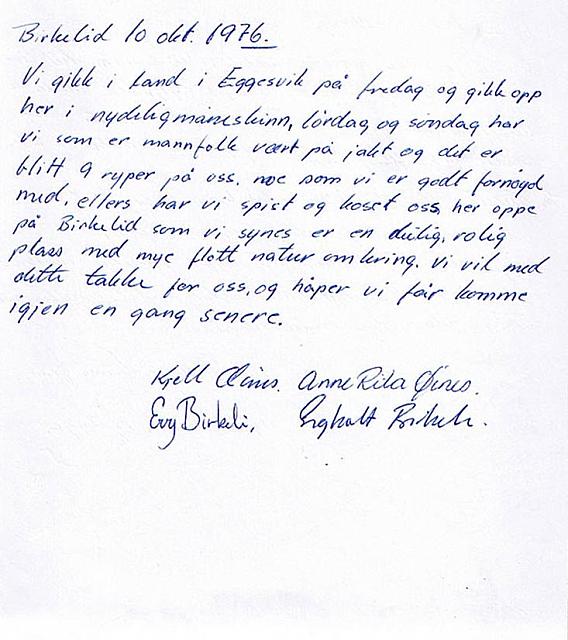 Birkelid 10 okt. 1976.
Vi gikk i land i Eggesvik på fredag og gikk opp
her i nydelig måneskinn, lørdag og søndag har
vi som er mannfolk vært på jakt og det er
blitt 9 ryper på oss, noe som vi er godt fornøyd
med, ellers har vi spist og koset oss her oppe
på Birkelid som vi synes er en deilig, rolig
plass med mye flott natur omkring. Vi vil med
dette takke for oss, og håper vi får komme
igjen en gang senere.
Kjell Øines. Anne Rita Øines.
Evy Birkeli,